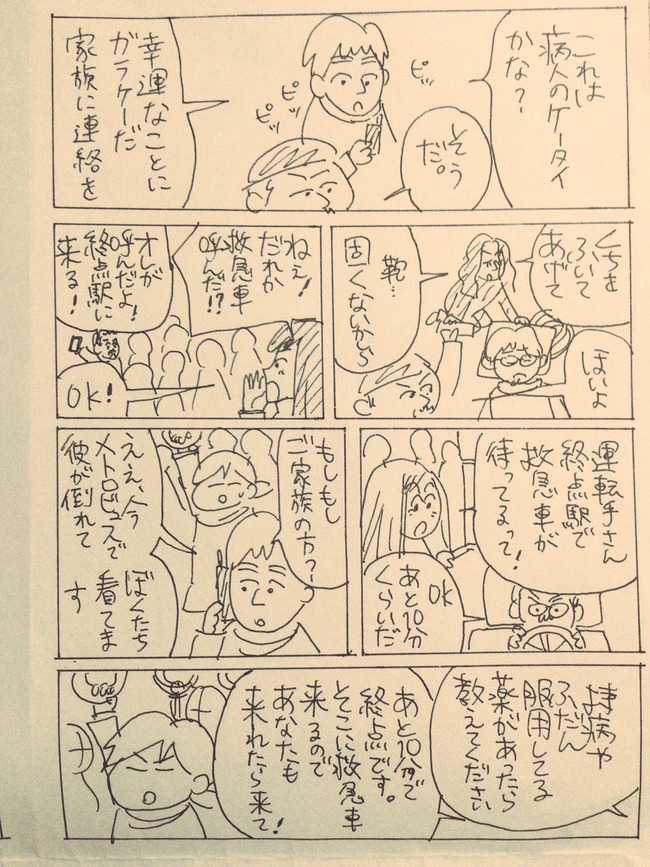 これは
病人のケータイ
かな？
ピッ
そう
だ。
ピッ
ピッ
幸運なことに
ガラケーだ
家族に連絡を
くちを
ふいて
あげて
ほいよ
鞄…
固くないから
ねぇ！
だれか
救急車
呼んだ!?
オレが
呼んだよ！
終点駅に
来る！
OK！
運転手さん
終点駅で
救急車が
待ってるって！
OK
あと10分
くらいだ
もしもし
ご家族の方？
ええ、今
メトロビュスで
彼が倒れて
ぼくたち
看てま
す
持病や
ふだん
服用してる
薬があったら
教えてください
あと10分で
終点です。
そこに救急車
来るので
あなたも
来れたら来て！